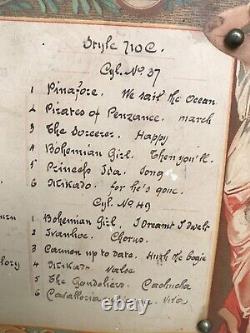 Style 710C.
Cyl. No 37
1 Pinafore. We sail the Ocean.
2 Pirates of Penzance. march
3 The Sorcerer. Happy
4 Bohemian Girl. Then you'll.
5 Princess Ida. Song
6 Mikado. for he's gone.
Cyl. No 49
1 Bohemian Girl. I Dreamt I Dwelt
2 Ivanhoe. Chorus.
3 Carmen up to date. Hush the bogie
4 Mikado. Valse
5 The Gondoliers. Cachucha
6 Cavalleria